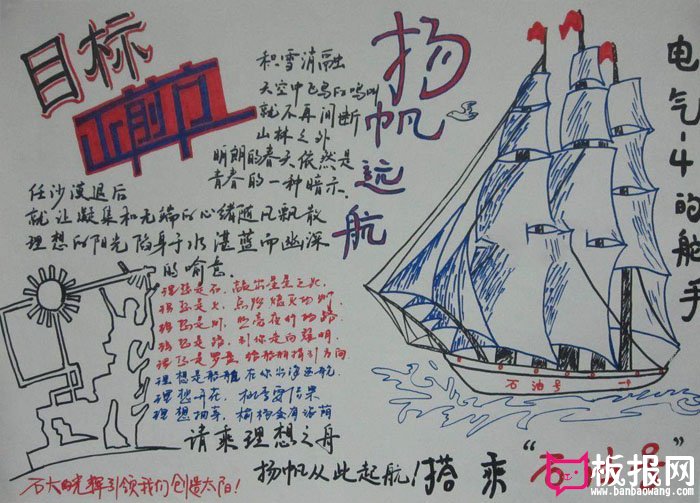 目标
正前方
扬帆远航
积雪消融
天空中飞鸟的鸣叫
就不再间断
山林之外
明朗的春天依然是
青春的一种暗示.
任沙漠退后
就让凝集和无端的心绪随风飘散
理想的阳光陷身于水湛蓝而幽深
的喻意.
理想是石，敲出星星之火，
理想是火，点燃熄灭的灯，
理想是灯，照亮夜行的路，
理想是路，引你走向黎明.
理想是罗盘，给船舶指引方向
理想是船舶
理想开花，
理想抽芽，
请乘理想之舟
扬帆从此起航！搭乘“
石大的光辉引领我们创造太阳！
电气-4的舵手
石油号
板报网
www.banbaowang.com